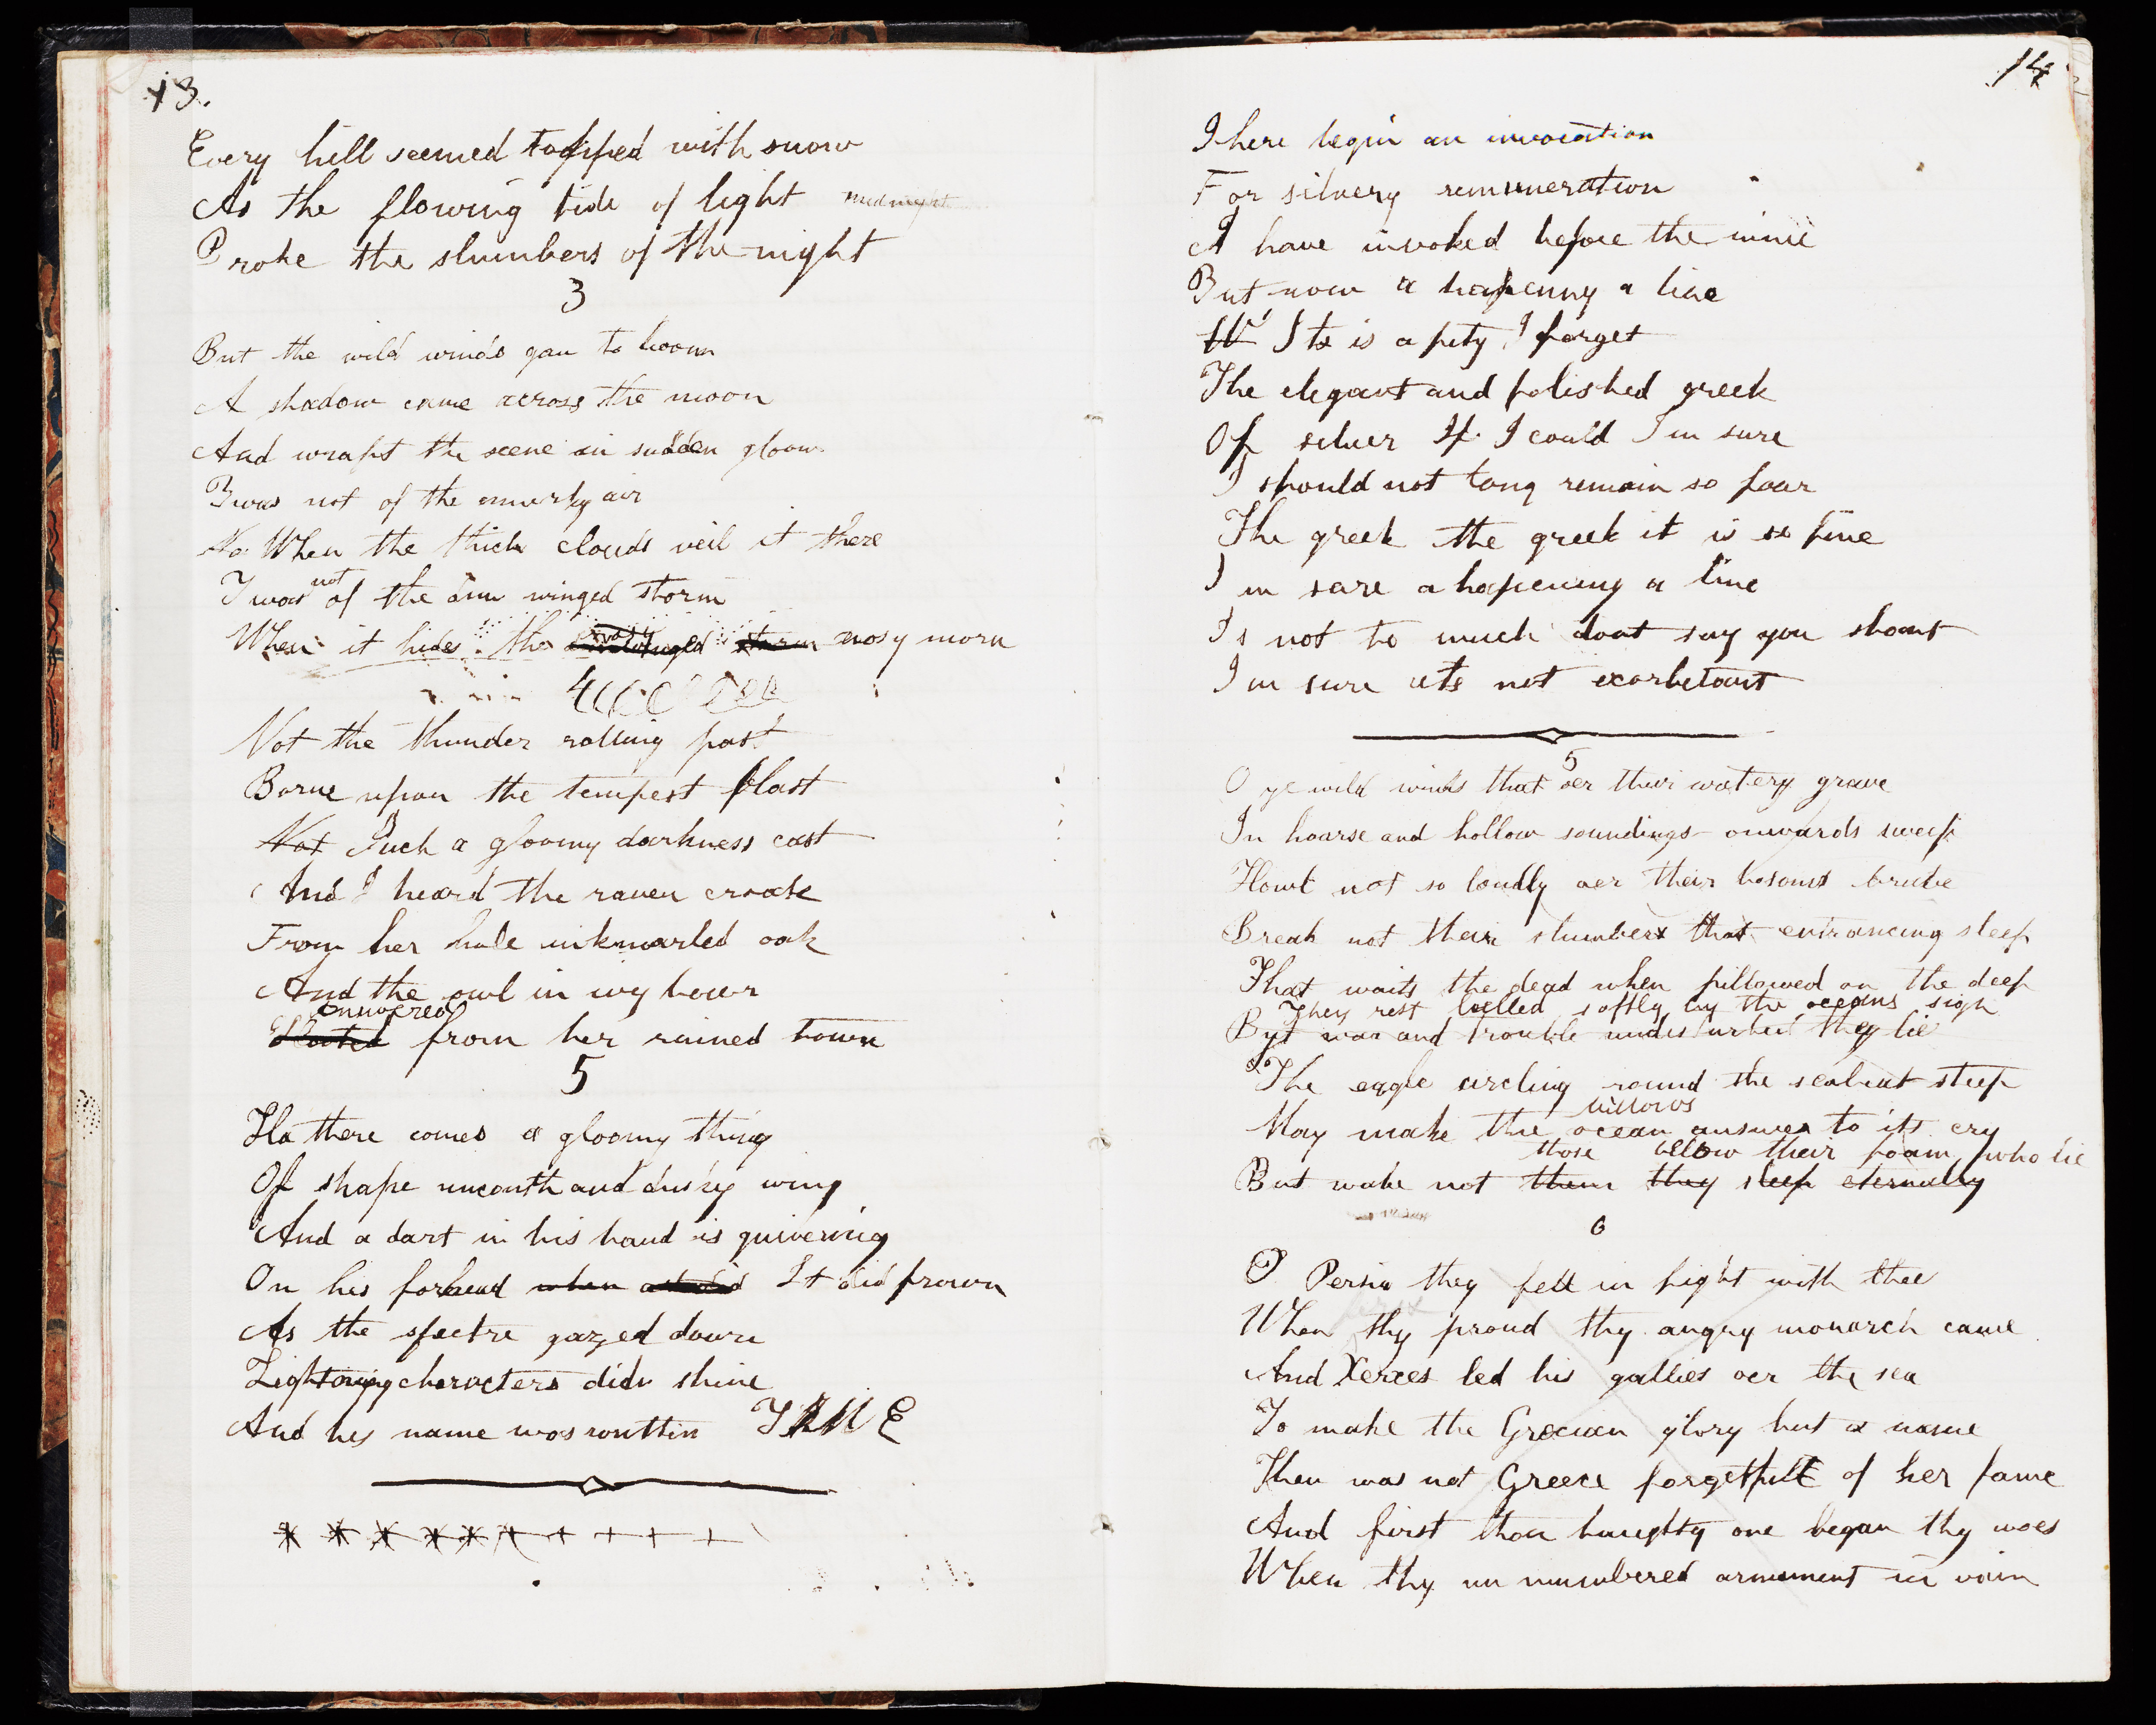 13.
Every hill seemed topped with snow
As the flowing tide of light midnight
Broke the slumbers of the night
3
But the wild winds gan to boom
A shadow came across the moon
And wrapt the scene in sudden gloom
Twas not of the murky air
No When the thick clouds veil it there
Twas not of the dim winged storm
When it hides the storm rosy morn
4
Not the thunder rolling past
Borne upon the tempest blast
Not Such a gloomy darkness cast
And I heard the raven croak
From her hole inknarled oak
And the owl in ivy bower
answered
from her ruined tower
5
Ha there comes a gloomy thing
Of shape uncouth and dusky wing
And a dart in his hand is quivering
On his forhead when It did frown
As the spectre gazed down
Lightning characters did shine
And his name was writtin TIME
14
I here begin an invocation
For silvery remuneration
I have invoked before the nine
But now a hapenny a line
It is a pity I forget
The elegant and polished greek
Of silver If I could Im sure
I should not long remain so poor
The greek the greek it is so fine
Im sure a hapenny a line
Is not to much dont say you shant
Im sure its not exorbetant
5
O ye wild winds that oer their watery grave
In hoarse and hollow soundings onwards sweep
Howl not so loudly oer their bosoms brave
Break not their slumbers that entrancing sleep
That waits the dead when pillowed on the deep
They rest lulled softly by the oceans sigh
By war and trouble undisturbed they lie
The eagle circling round the seabeat steep
billows
May make the ocean answer to its cry
those below their foam who lie
But wake not them they sleep eternally
6
O Persia they fell in fight with thee
When thy proud thy angry monarch came
And Xerxes led his gallies oer the sea
To make the Grecian glory but a name
Then was not Greece forgetfull of her fame
And first thou haughty one began thy woes
When thy un numbered armament in vain